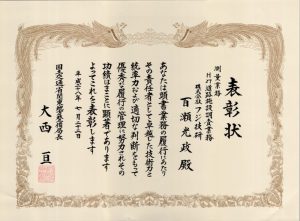 表彰状
測量業務
H27道路施設調査業務
株式会社フジ技研
百瀬光政殿
あなたは頭書業務の履行にあたり
その責任者として卓越した技術力と
統率力および適切な判断をもって
優秀な履行の管理に努力されその
功績はまことに顕著であります
よってこれを表彰します
平成二十八年七月二十二日
国土交通省関東地方整備局長
大西亘